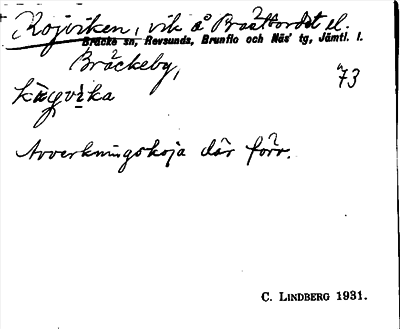 Kojviken, vik å Bräcktordet el.
Bräcke sn, Revsunds, Brunflo och Näs' tg, Jämtl. l.
Bräckeby,
73
Avverkningskoja där förr.
C. LINDBERG 1931.